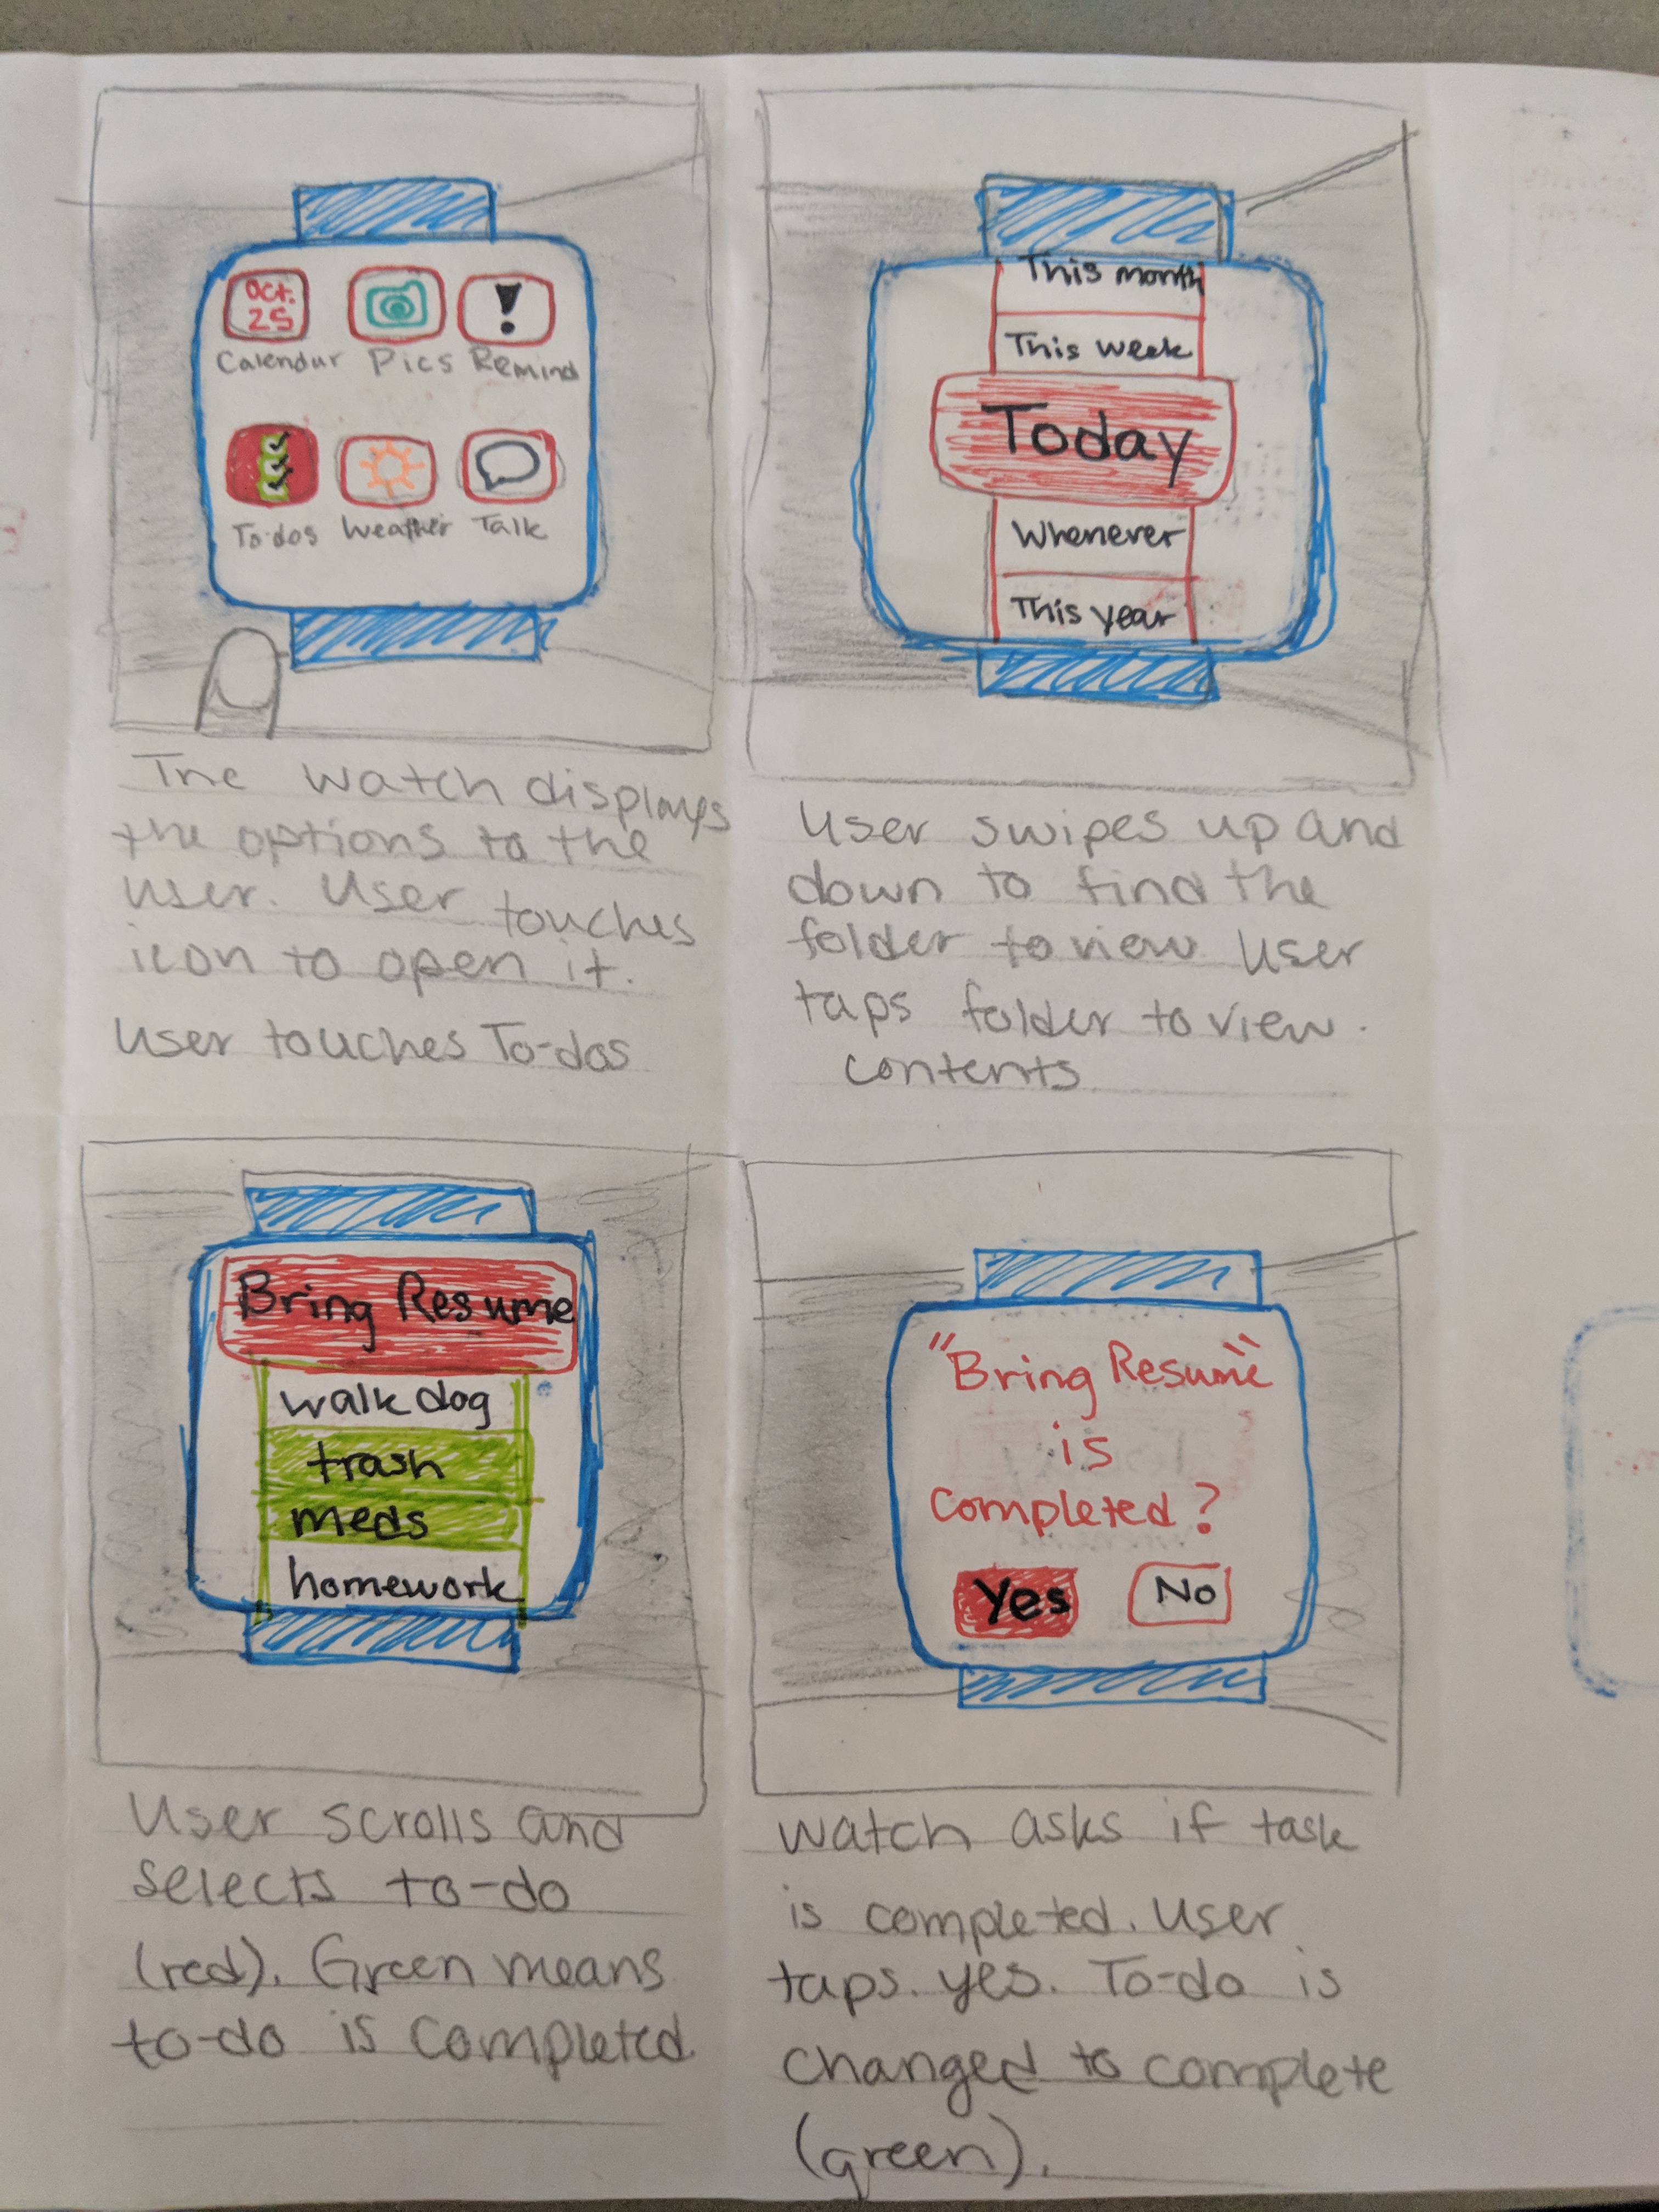 Oct.
25
Calendar Pics Remind
To-dos Weather Talk
The watch displays
the options to the
user. User touches
icon to open it.
User touches To-dos
This month
This week
Today
Whenever
This year
User swipes up and
down to find the
folder to view User
taps folder to view.
contents
Bring Resume
walk dog
trash
meds
homework
User scrolls and
selects to-do
(red). Green means
to-do is completed
"Bring Resume"
is
completed?
Yes No
Watch asks if task
is completed. User
taps yes. To-do is
changed to complete
(green).